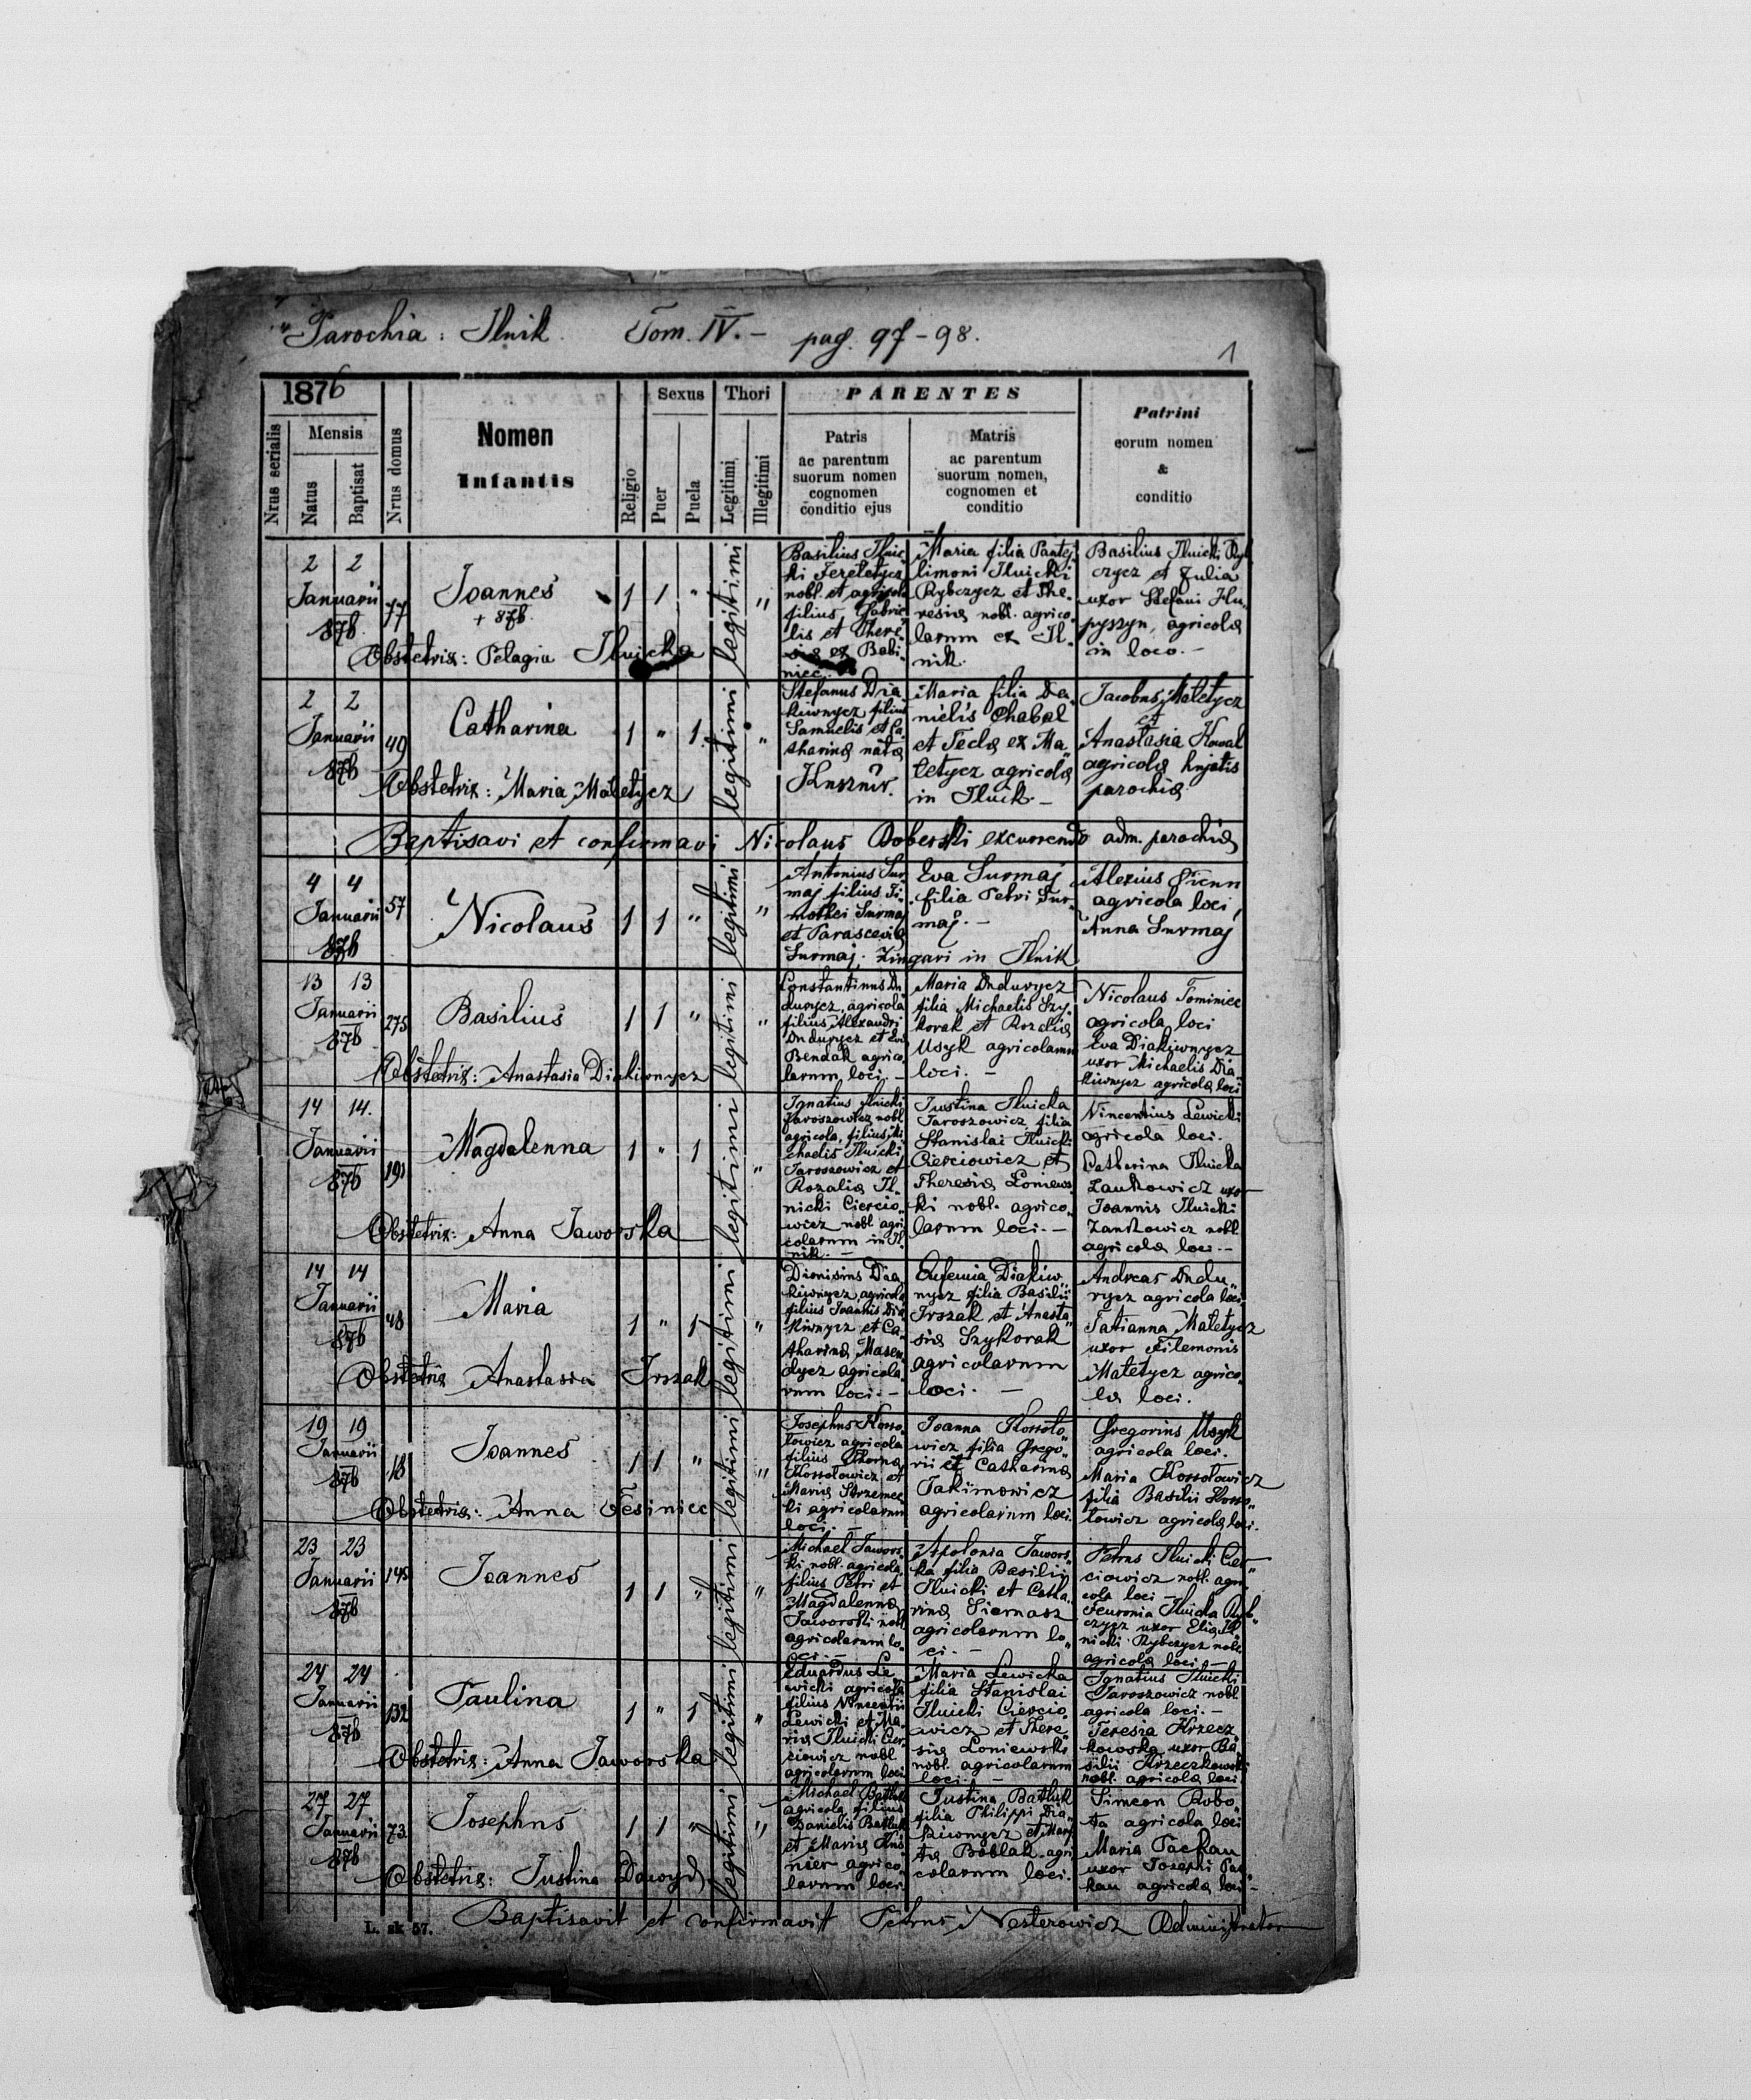 Parochia: Ilnik. Tom. IV. – pag. 97-98.
1
1876
Nrus serialis
Mensis
Natus
Baptisat
Nrus domus
Nomen
Infantis
Religio
Sexus
Puer
Puela
Thori
Legitimi
Illegitimi
PARENTES
Patris
ac parentum
suorum nomen
cognomen
conditio ejus
Matris
ac parentum
suorum nomen,
cognomen et
conditio
Patrini
eorum nomen
&
conditio
2 2
Januarii
876
77
Joannes
+ 876.
1 1 "
legitimi
"
Basilius Ilnic
ki Tereletycz
nobl. et agricola
filius Gabrie
lis et There
siæ ex Babi
niec.
Maria filia Pantej
limoni Ilnicki
Rybczycz et The-
resiæ nobl. agrico-
larum ex Il-
nik.
Basilius Ilnicki Ryb
czycz et Julia
uxor Stefani Hu
pyszyn, agricolæ
in loco. –
Obstetrix: Pelagia Ilnicka
2 2
Januarii
876
49
Catharina
1 " 1
legitimi
"
Stefanus Dia
kiwnycz filius
Samuelis et Ca
tharinæ nata
Kusznir.
Maria filia Da-
nielis Chabal
et Teclæ ex Ma
letycz agricolæ
in Ilnik. –
Jacobus Maletycz
et
Anastasia Kowal
agricolæ hujatis
parochiæ
Obstetrix: Maria Maletycz
Baptisavi et confirmavi Nicolaus Doberski excurrendo adm. parochiæ
4 4
Januarii
876
57
Nicolaus
1 1 "
legitimi
"
Antonius Sur-
maj filius Ti-
mothei Surmaj
et Parasceviæ
Surmaj. Zingari in Ilnik
Eva Surmaj
filia Petri Sur-
maj. –
Alexius
agricola loci,
Anna Surmaj
13 13
Januarii
876
275
Basilius
1 1 "
legitimi
"
Constantinus Du
durycz, agricola
filius Alexandri
Dudurycz et Evæ
Bendak agrico
larum loci. –
Maria Dudurycz
filia Michaelis Szy-
korak et Rozaliæ
Usyk agricolarum
loci. –
Nicolaus Tominiec
agricola loci
Eva Diakiwnycz
uxor Michaelis Dia
kiwnycz agricolæ loci
Obstetrix: Anastasia Diakiwnycz
14 14.
Januarii
876
191
Magdalenna
1 " 1
legitimi
"
Ignatius Ilnicki
Jaroszowicz nobl.
agricola, filius Mi
chaelis Ilnicki
Jaroszowicz et
Rozaliæ Il-
nicki Ciercio
wicz nobl. agri
colarum in Il
nik. –
Justina Ilnicka
Jaroszowicz filia
Stanislai Ilnicki
Cierciowicz et
Theresiæ Loniews
ki nobl. agrico-
larum loci. –
Vincentius Lewicki
agricola loci.
Catharina Ilnicka
Zankowicz uxor
Joannis Ilnicki
Zankowicz nobl.
agricolæ loci. –
Obstetrix: Anna Jaworska
14 14
Januarii
876
48
Maria
1 " 1
legitimi
"
Dionisius Dia
kiwnycz, agricola
filius Joannis Dia
kiwnycz et Ca-
tharinæ Masen
dycz agricola
rum loci. –
Eufemia Diakiw
nycz filia Basilii
Irszak et Anasta
siæ Szykorak
agricolarum
loci. –
Andreas Dudu
rycz agricola loci
Tatianna Maletycz
uxor Filemonis
Maletycz agrico
læ loci.
Obstetrix Anastasia Irszak
19 19
Januarii
876
18
Joannes
1 1 "
legitimi
"
Josephus Kosso
lowicz agricola
filius Thomæ
Kossolowicz et
Mariæ Strzemec
ki agricolarum
loci. –
Joanna Kossolo
wicz filia Grego
rii et Catharinæ
Jakimowicz
agricolarum loci.
Gregorius Usyk
agricola loci. –
Maria Kossolowicz
filia Basilii Kosso
lowicz agricolæ loci.
Obstetrix: Anna Fesiniec
23 23
Januarii
876
145
Joannes
1 1 "
legitimi
"
Michael Jawors
ki nobl. agricola
filius Petri et
Magdalennæ
Jaworski nobl
agricolarum lo
ci. –
Apolonia Jawors
ka filia Basilii
Ilnicki et Catha
rinæ Siernasz
agricolarum lo
ci. –
Petrus Ilnicki Cier
ciowicz nobl. agri
cola loci –
Feuronia Ilnicka Ryb
czycz uxor Eliæ Il
nicki Rybczycz nobl.
agricolæ loci. –
24 24
Januarii
876
132
Paulina
1 " 1
legitimi
"
Eduardus Le
wicki agricola
filius Vincentii
Lewicki et Ma
riæ Ilnicki Cier
ciowicz nobl
agricolarum loci
Maria Lewicka
filia Stanislai
Ilnicki Ciercio
wicz et There
siæ Loniewski
nobl. agricolarum
loci. –
Ignatius Ilnicki
Jaroszowicz nobl.
agricola loci. –
Teresia Krzecz
kowska uxor Ba
silii Krzeczkowski
nobl. agricolæ loci
Obstetrix: Anna Jaworska
27 27
Januarii
876
73
Josephus
1 1 "
legitimi
"
Michael Batluk
agricola filius
Danielis Batluk
et Mariæ Kus
nier agrico
larum loci
Justina Batluk
filia Philippi Dia
kiwnycz et Mar
tæ Boblak agri
colarum loci.
Simeon Robo
ta agricola loci
Maria Packan
uxor Josephi Pac
kan agricolæ loci –
Obstetrix: Justina Dawyd
Baptisavit et confirmavit Petrus Nesterowicz Administrator
L. sk 57.